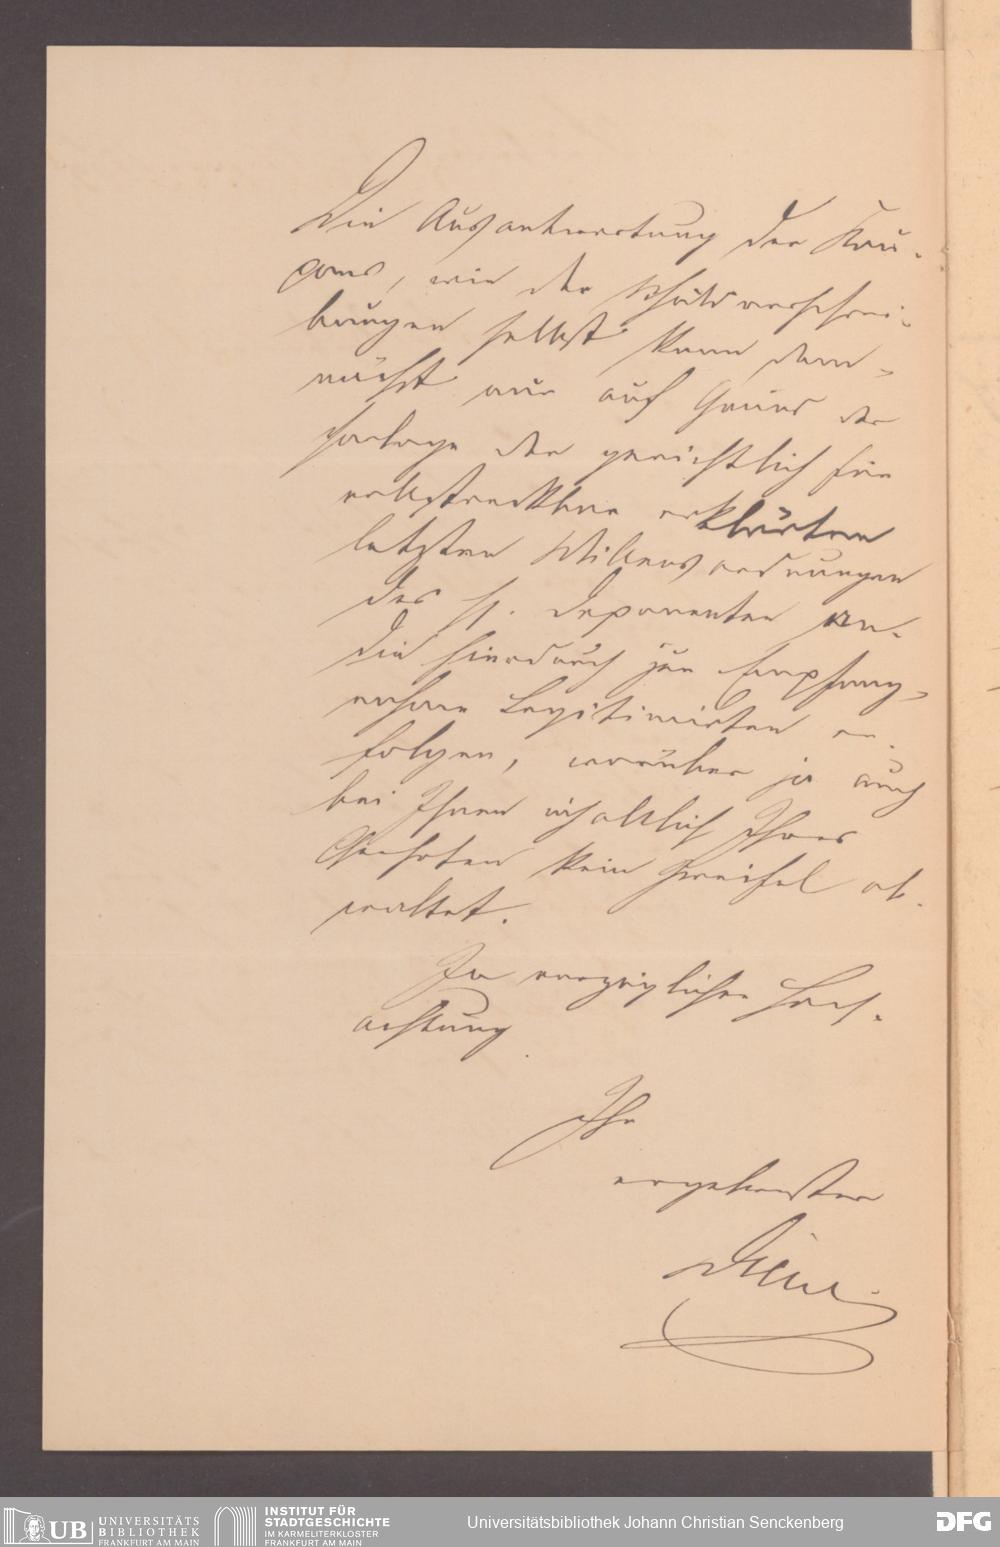 Die Ausantwortung der Kou-
pons, wie der Schuldverschrei-
bungen selbst kann dem-
nächst nur auf Grund der
Vorlage der gerichtlich für
vollstreckbar erklärten
letzten Willensordnungen
des H. Deponenten an
die hierdurch zur Empfang-
nahme Legitimirten er-
folgen, worüber ja auch
bei Ihnen inhaltlich Ihres
Geehrten kein Zweifel ob-
waltet.
In vorzüglicher Hoch-
achtung
Ihr
ergebenster
UB UNIVERSITÄTS
BIBLIOTHEK
FRANKFURT AM MAIN
INSTITUT FÜR
STADTGESCHICHTE
IM KARMELITERKLOSTER
FRANKFURT AM MAIN
Universitätsbibliothek Johann Christian Senckenberg
DFG